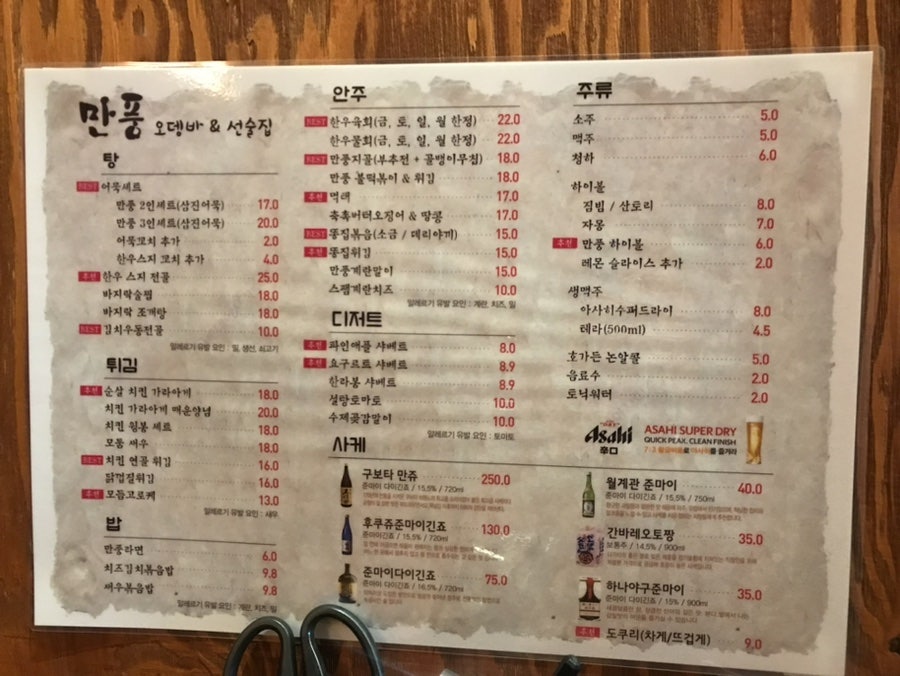 만풍 오뎅바 & 선술집
탕
BEST 어묵세트
만풍 2인세트(삼진어묵) 17.0
만풍 3인세트(삼진어묵) 20.0
어묵꼬치 추가 2.0
한우스지 꼬치 추가 4.0
추천 한우 스지 전골 25.0
바지락술찜 18.0
바지락 조개탕 18.0
BEST 김치우동전골 10.0
알레르기 유발 요인 : 밀, 생선, 쇠고기
튀김
추천 순살 치킨 가라아게 18.0
치킨 가라아게 매운양념 20.0
치킨 윙봉 세트 18.0
모둠 새우 18.0
BEST 치킨 연골 튀김 16.0
닭껍질튀김 16.0
추천 모듬고로케 13.0
알레르기 유발 요인 : 새우
밥
만풍라면 6.0
치즈김치볶음밥 9.8
새우볶음밥 9.8
알레르기 유발 요인 : 계란, 치즈, 밀
안주
BEST 한우육회(금, 토, 일, 월 한정) 22.0
한우물회(금, 토, 일, 월 한정) 22.0
BEST 만풍지골(부추전 + 골뱅이무침) 18.0
만풍 불떡볶이 & 튀김 18.0
추천 먹태 17.0
촉촉버터오징어 & 땅콩 17.0
BEST 똥집볶음(소금 / 데리야끼) 15.0
추천 똥집튀김 15.0
만풍계란말이 15.0
스팸계란치즈 10.0
알레르기 유발 요인 : 계란, 치즈, 밀
디저트
추천 파인애플 샤베트 8.0
추천 요구르트 샤베트 8.9
한라봉 샤베트 8.9
설탕토마토 10.0
수제곶감말이 10.0
알레르기 유발 요인 : 토마토
사케
구보타 만쥬 250.0
준마이 다이긴죠 / 15.5% / 720ml
후쿠쥬준마이긴죠 130.0
준마이긴죠 / 15.5% / 720ml
준마이다이긴죠 75.0
준마이 다이긴죠 / 16.5% / 720ml
주류
소주 5.0
맥주 5.0
청하 6.0
하이볼
짐빔 / 산토리 8.0
자몽 7.0
추천 만풍 하이볼 6.0
레몬 슬라이스 추가 2.0
생맥주
아사히수퍼드라이 8.0
테라(500ml) 4.5
호가든 논알콜 5.0
음료수 2.0
토닉워터 2.0
Asahi
辛口
ASAHI SUPER DRY
QUICK PEAK. CLEAN FINISH
7:3 황금비율로 아사히를 즐겨라
월계관 준마이 40.0
준마이 다이긴죠 / 15.5% / 750ml
간바레오토짱 35.0
보통주 / 14.5% / 900ml
하나야구준마이 35.0
준마이 다이긴죠 / 15% / 900ml
추천 도쿠리(차게/뜨겁게) 9.0